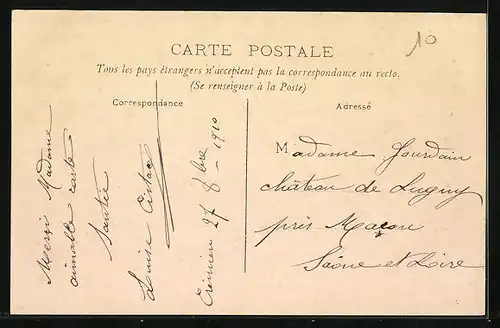 10
CARTE POSTALE
Tous les pays étrangers n'acceptent pas la correspondance au recto.
(Se renseigner à la Poste)
Correspondance
Adresse
Merci Madame
aimable carte
Santée
Louise
Crémieu 27 8bre - 1910
Madame Jourdain
château de Lugny
près Macon
Saône et Loire